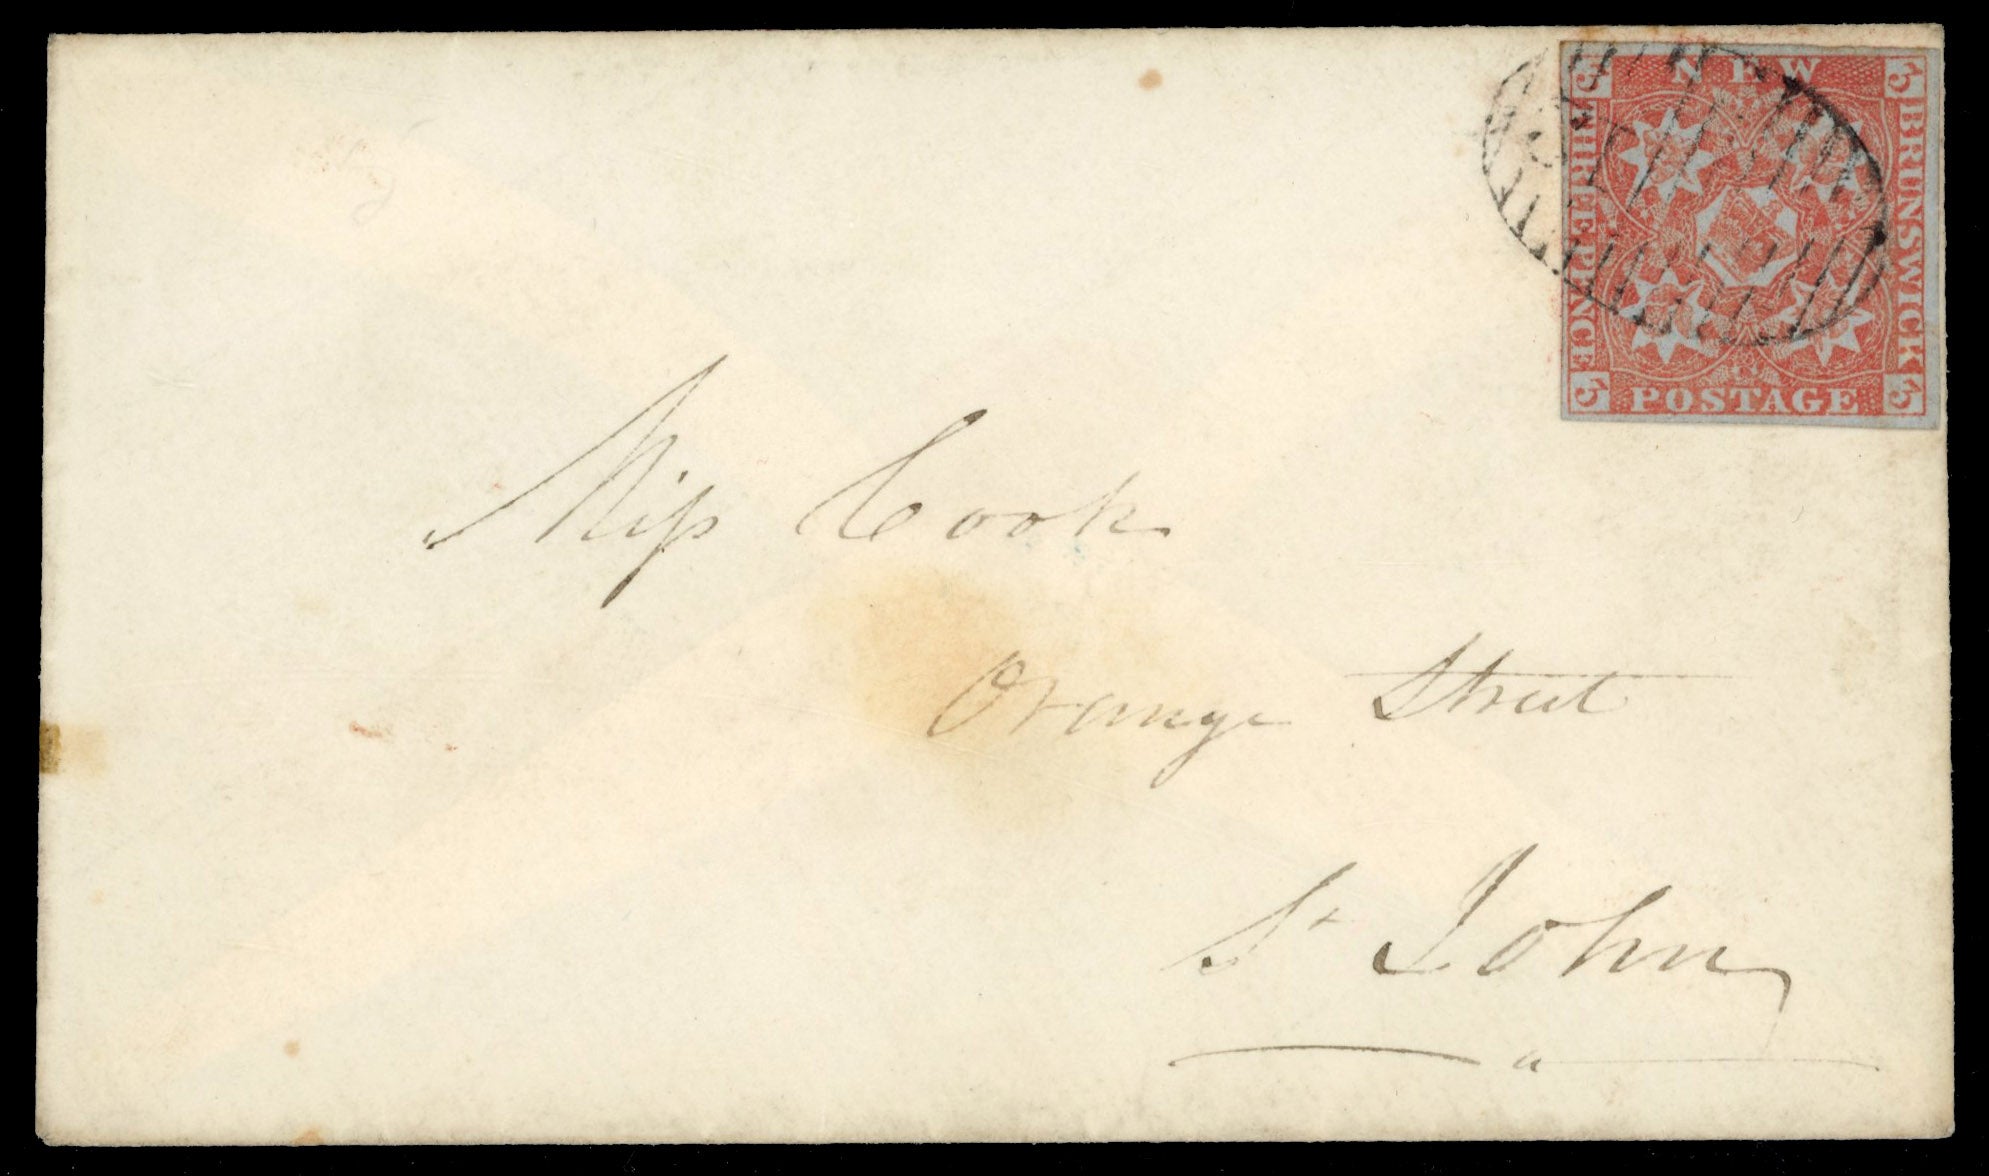 NEW
BRUNSWICK
THREE PENCE
POSTAGE
3 3
3 3
Miſs Cook
Orange Street
St John